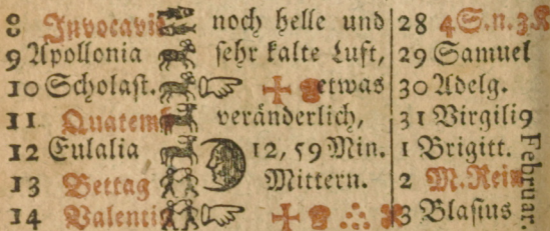 8 Invocavit noch helle und 28 4 S. n. 3. K
9 Apollonia sehr kalte Luft, 29 Samuel
10 Scholast. etwas 30 Adelg.
11 Quatemb veränderlich, 31 Virgilig
12 Eulalia 12, 59 Min. 1 Brigitt.
13 Bettag Mittern. 2 M. Rein
14 Valentin 3 Blasius
Februar.